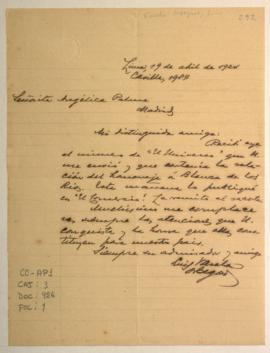 292
Lima, 19 de abril de 1924
Casilla, 1989
Señorita Angélica Palma
Madrid
Mi distinguida amiga:
Recibí ayer
el número de "El Universo" que U.
me envió y que contenía la rela-
ción del homenaje a Blanca de los
Ríos. Esta mañana la publiqué
en "El Comercio". Le remito el recorte
Muchísimo me complace
siempre las atenciones que U.
conquista y la honra que ellas cons-
tituyen para nuestro país.
Siempre su admirador y amigo
Luis Varela
Orbegoso
CO-AP1
CAJ: 3
DOC: 926
FOL: 1